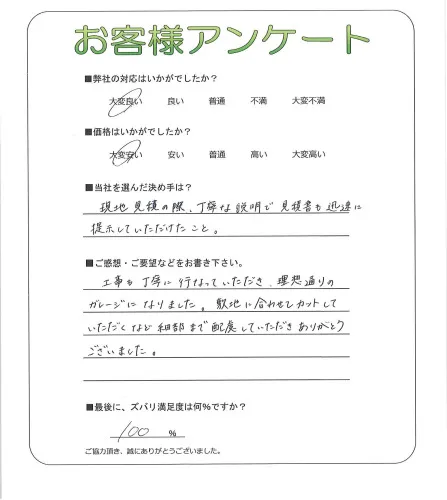 お客様アンケート
■弊社の対応はいかがでしたか?
大変良い 良い 普通 不満 大変不満
■価格はいかがでしたか?
大変安い 安い 普通 高い 大変高い
■当社を選んだ決め手は?
現地見積の際、丁寧な説明で見積書も迅速に
提示していただけたこと。
■ご感想・ご要望などをお書き下さい。
工事も丁寧に行なっていただき、理想通りの
ガレージになりました。敷地に合わせてカットして
いただくなど細部まで配慮していただきありがとう
ございました。
■最後に、ズバリ満足度は何%ですか?
100 %
ご協力頂き、誠にありがとうございました。